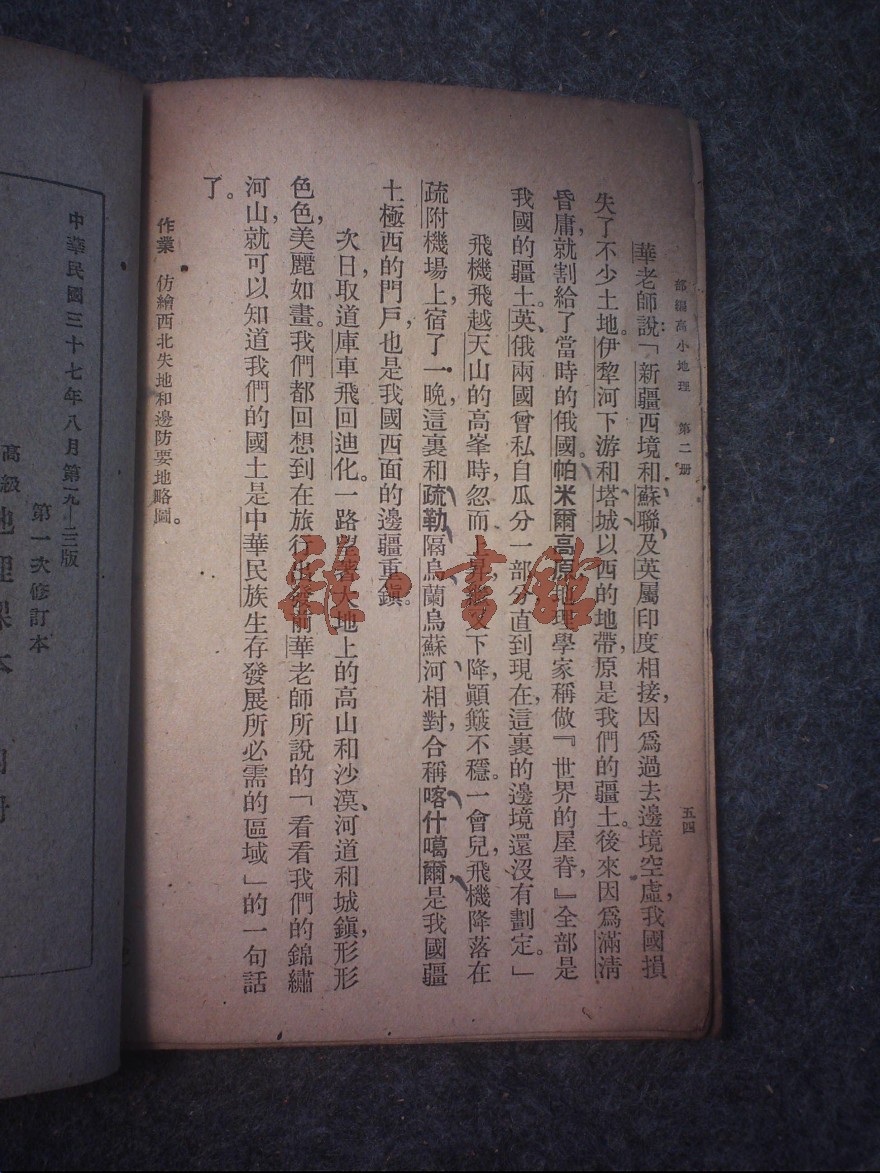 部編高小地理 第二册
五四
華老師說:「新疆西境和蘇聯、及英屬印度相接,因爲過去邊境空虛,我國損
失了不少土地。伊犂河下游和塔城以西的地帶,原是我們的疆土。後來因爲滿淸
昏庸,就割給了當時的俄國。帕米爾高原地理學家稱做『世界的屋脊,』全部是
我國的疆土。英、俄兩國曾私自瓜分一部分,直到現在,這裏的邊境還沒有劃定。」
飛機飛越天山的高峯時,忽而上昇,忽又下降,顚簸不穩。一會兒,飛機降落在
疏附機場上,宿了一晚,這裏和疏勒隔烏蘭烏蘇河相對,合稱喀什噶爾,是我國疆
土極西的門戶,也是我國西面的邊疆重鎭。
次日,取道庫車飛回迪化。一路望着大地上的高山和沙漠、河道和城鎭,形形
色色,美麗如畫。我們都回想到在旅行出發前華老師所說的「看看我們的錦繡
河山,就可以知道我們的國土是中華民族生存發展所必需的區域」的一句話
了。
作業 仿繪西北失地和邊防要地略圖。
雜·書館
中華民國三十七年八月第一九十三版
第一次修訂本
高級
地理課本